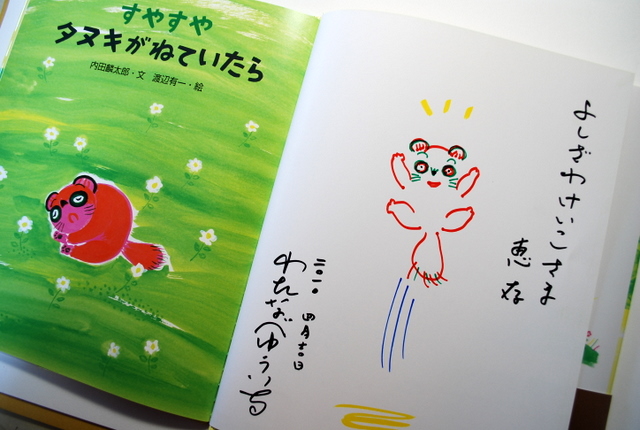 すやすや
タヌキがねていたら
内田麟太郎・文 渡辺有一・絵
よしざわけいこさま
恵存
二〇一〇 四月吉日
わたなべゆういち